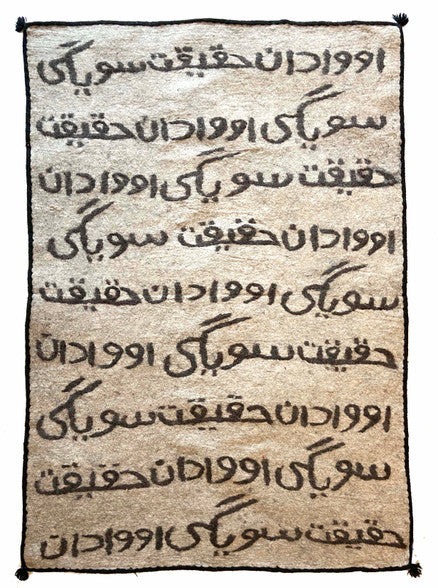 اووادان حقیقت سویاگی
سویاگی اووادان حقیقت
حقیقت سویاگی اووادان
اووادان حقیقت سویاگی
سویاگی اووادان حقیقت
حقیقت سویاگی اووادان
اووادان حقیقت سویاگی
سویاگی اووادان حقیقت
حقیقت سویاگی اووادان